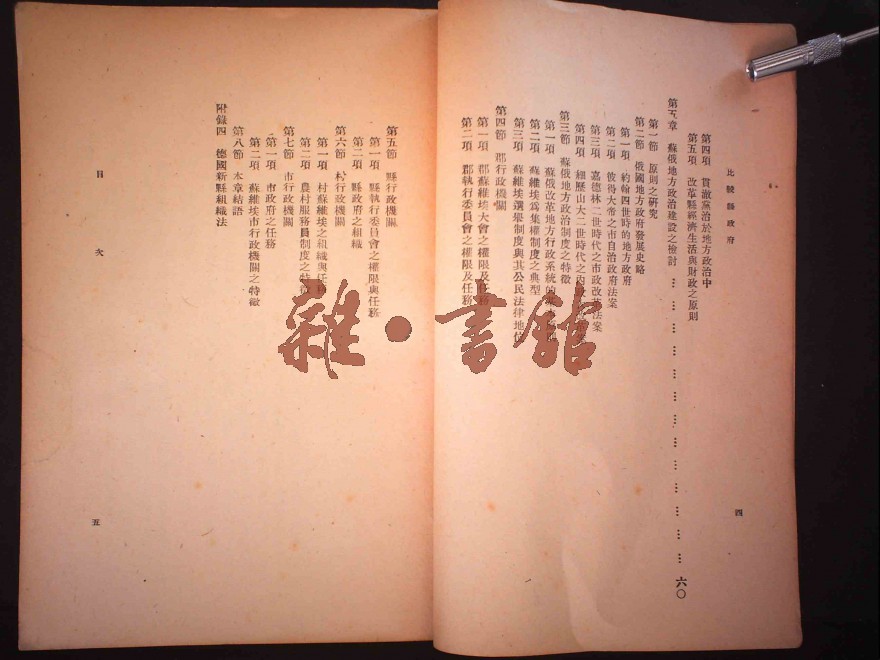 比較縣政府
四
第四項 貫澈黨治於地方政治中
第五項 改革縣經濟生活與財政之原則
第五章 蘇俄地方政治建設之檢討 ………………………………… 六〇
第一節 原則之研究
第二節 俄國地方政府發展史略
第一項 約翰四世時的地方政府
第二項 彼得大帝之市自治政府法案
第三項 嘉德林二世時代之市政改革法案
第四項 亞歷山大二世時代之
第三節 蘇俄地方政治制度之特徵
第一項 蘇俄改革地方行政系統的
第二項 蘇維埃為集權制度之典型
第三項 蘇維埃選舉制度與其公民法律地位
第四節 郡行政機關
第一項 郡蘇維埃大會之權限及任務
第二項 郡執行委員會之權限及任務
第五節 縣行政機關
第一項 縣執行委員會之權限與任務
第二項 縣政府之組織
第六節 村行政機關
第一項 村蘇維埃之組織與任務
第二項 農村服務員制度之特徵
第七節 市行政機關
第一項 市政府之任務
第二項 蘇維埃市行政機關之特徵
第八節 本章結語
附錄四 德國新縣組織法
目次
五
雜·書館